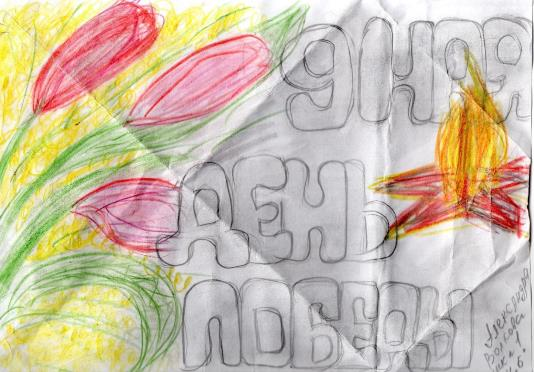 9 МАЯ
ДЕНЬ
ПОБЕДЫ
Александра
Волкова